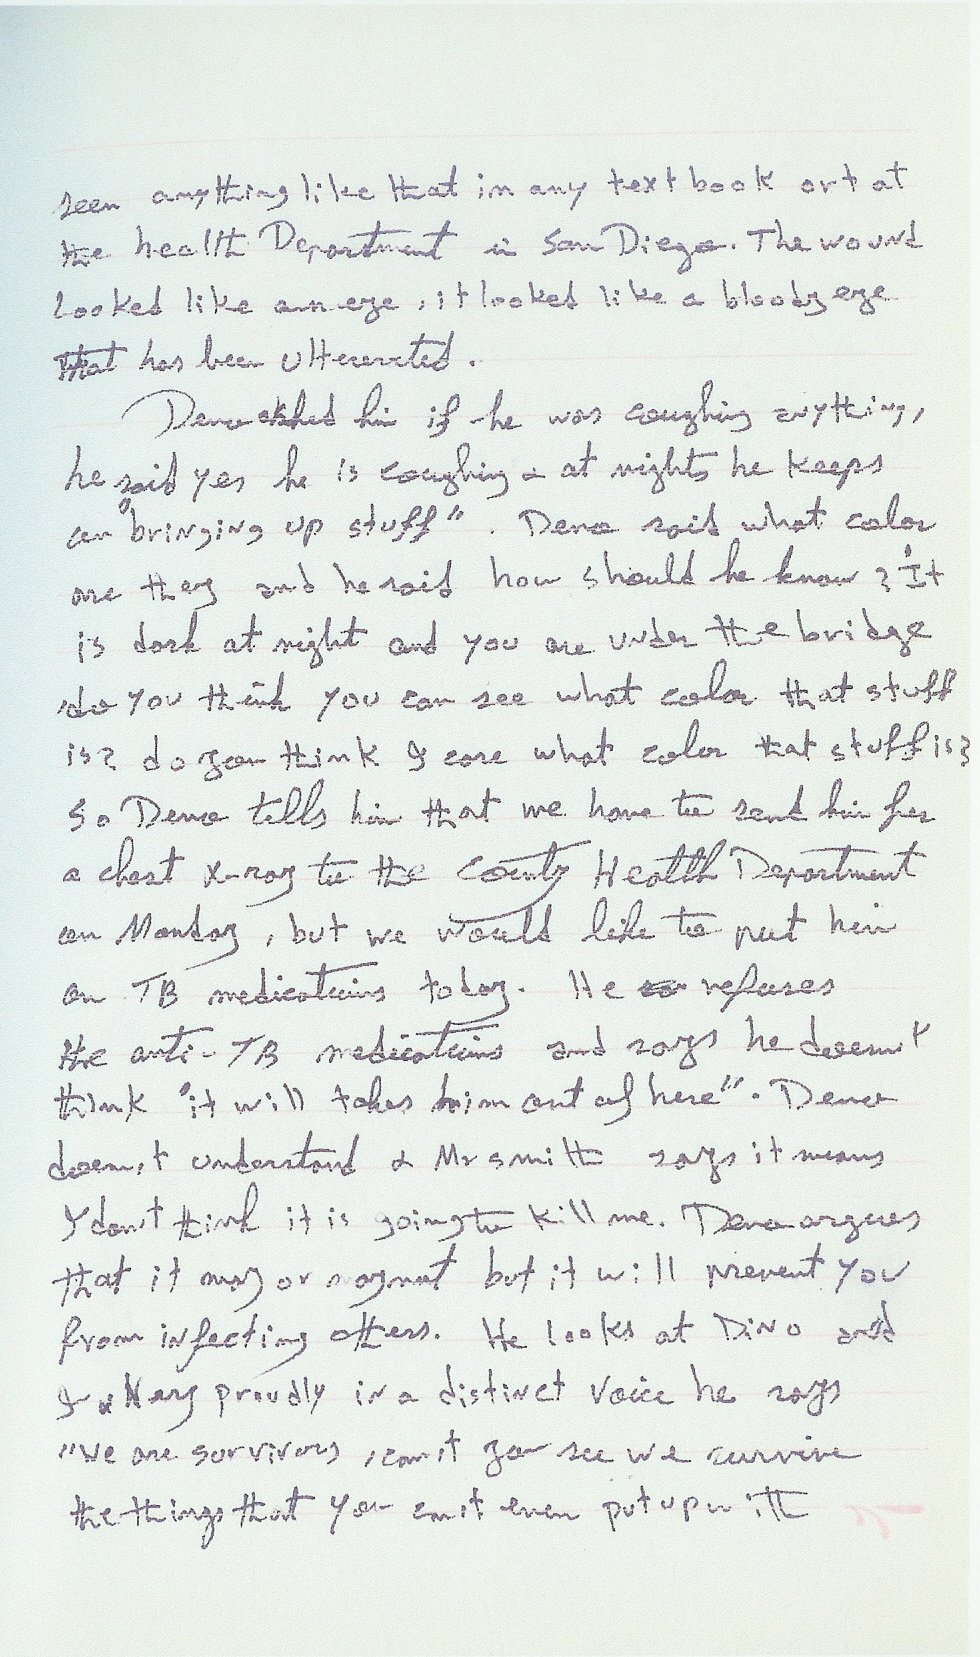 seen anything like that in any text book or at at
the health Department in San Diego. The wound
looked like an eye, it looked like a bloody eye
that has been
Deno asked him if he was coughing anything,
he said yes he is coughing & at nights he keeps
on "bringing up stuff". Deno said what color
are they and he said how should he know? "It
is dark at night and you are under the bridge
do you think you can see what color that stuff
is? do you think I care what color that stuff is?
So Deno tells him that we have to send him for
a chest x-ray to the County Health Department
on Monday, but we would like to put him
on TB medications today. He refuses
the anti-TB medications and says he doesn't
think "it will takes him out of here". Deno
doesn't understand & Mr smith says it means
I don't think it is going to kill me. Deno argues
that it may or may not but it will prevent you
from infecting others. He looks at Dino and
I. Very proudly in a distinct voice he says
"We are survivors, can't you see we survive
the things that you can't even put up with